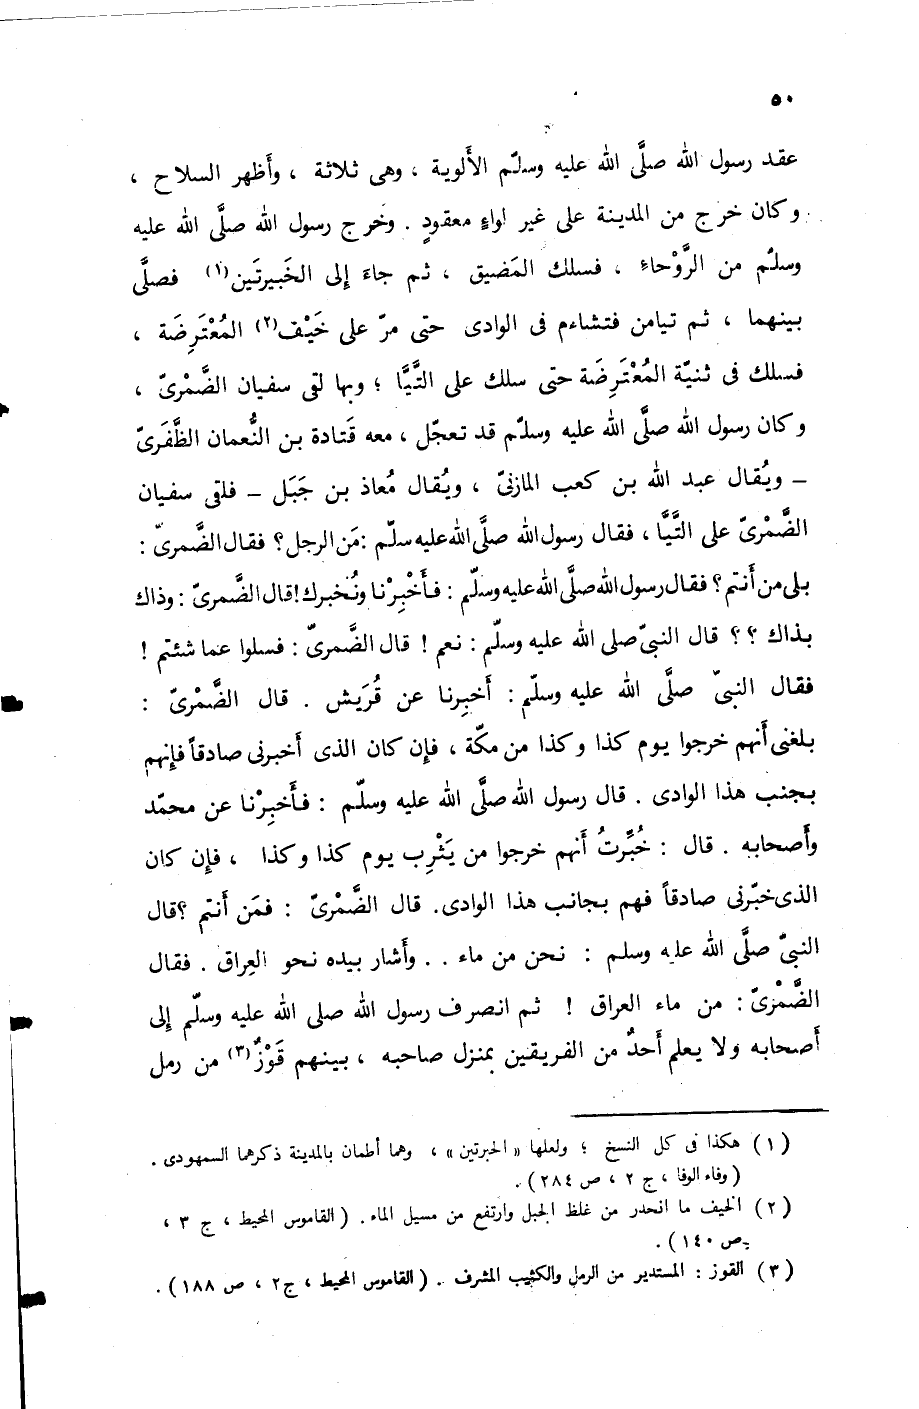 ٥٠
عقد رسول الله صلَّى الله عليه وسلّم الأَلوية ، وهى ثلاثة ، وأَظهر السلاح ،
وكان خرج من المدينة على غير لواءٍ معقودٍ . وخرج رسول الله صلَّى الله عليه
وسلّم من الرَّوْحاءِ ، فسلك المَضيق ، ثم جاءَ إلى الخَبيرتَين(١) فصلَّى
بينهما ، ثم تيامن فتشاءم فى الوادى حتى مرّ على خَيْف(٢) المُعْتَرِضَة ،
فسلك فى ثنيّة المُعْتَرِضَة حتى سلك على التَّيَّا ؛ وبها لقى سفيان الضَّمْرىّ ،
وكان رسول الله صلَّى الله عليه وسلّم قد تعجّل ، معه قَتادة بن النُّعمان الظَّفَرىّ
– ويُقال عبد الله بن كعب المازنىّ ، ويُقال مُعاذ بن جَبَل – فلقى سفيان
الضَّمْرىّ على التَّيَّا ، فقال رسول الله صلَّى الله عليه سلّم : مَن الرجل ؟ فقال الضَّمرىّ :
بلى من أَنتم ؟ فقال رسول الله صلَّى الله عليه وسلّم : فأَخْبِرْنا ونُخبرك ! قال الضَّمرىّ : وذاك
بذاك ؟ ؟ قال النبىّ صلى الله عليه وسلّم : نعم ! قال الضَّمرىّ : فسلوا عما شئتم !
فقال النبىّ صلَّى الله عليه وسلّم : أَخبِرنا عن قُرَيش . قال الضَّمْرىّ :
بلغنى أَنهم خرجوا يوم كذا وكذا من مكّة ، فإن كان الذى أخبرنى صادقاً فإنهم
بجنب هذا الوادى . قال رسول الله صلَّى الله عليه وسلّم : فأَخبِرْنا عن محمّد
وأَصحابه . قال : خُبِّرتُ أَنهم خرجوا من يَثْرِب يوم كذا وكذا ، فإن كان
الذى خبّرنى صادقاً فهم بجانب هذا الوادى . قال الضَّمْرىّ : فمَن أَنتم ؟ قال
النبىّ صلَّى الله عليه وسلم : نحن من ماء . . وأَشار بيده نحو العِراق . فقال
الضَّمْرىّ : من ماء العراق ! ثم انصرف رسول الله صلى الله عليه وسلّم إلى
أَصحابه ولا يعلم أَحدٌ من الفريقين بمنزل صاحبه ، بينهم قَوْزٌ(٣) من رمل
(١) هكذا فى كل النسخ ؛ ولعلها « الخبرتين » ، وهما أطمان بالمدينة ذكرهما السمهودى .
(وفاء الوفا ، ج ٢ ، ص ٢٨٤) .
(٢) الخيف ما انحدر من غلظ الجبل وارتفع من مسيل الماء . (القاموس المحيط ، ج ٣ ،
ص ١٤٠) .
(٣) القوز : المستدير من الرمل والكثيب المشرف . (القاموس المحيط ، ج ٢ ، ص ١٨٨) .